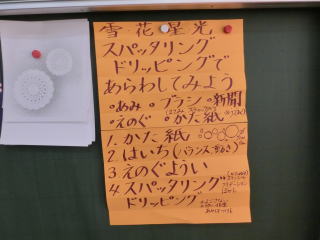 雪花星光
スパッタリング
ドリッピングで
あらわしてみよう
○あみ ○ブラシ ○新聞
○えのぐ ○かた紙
1. かた紙
2. はいち(バランス
3 えのぐようい
4. スパッタリング
ドリッピング